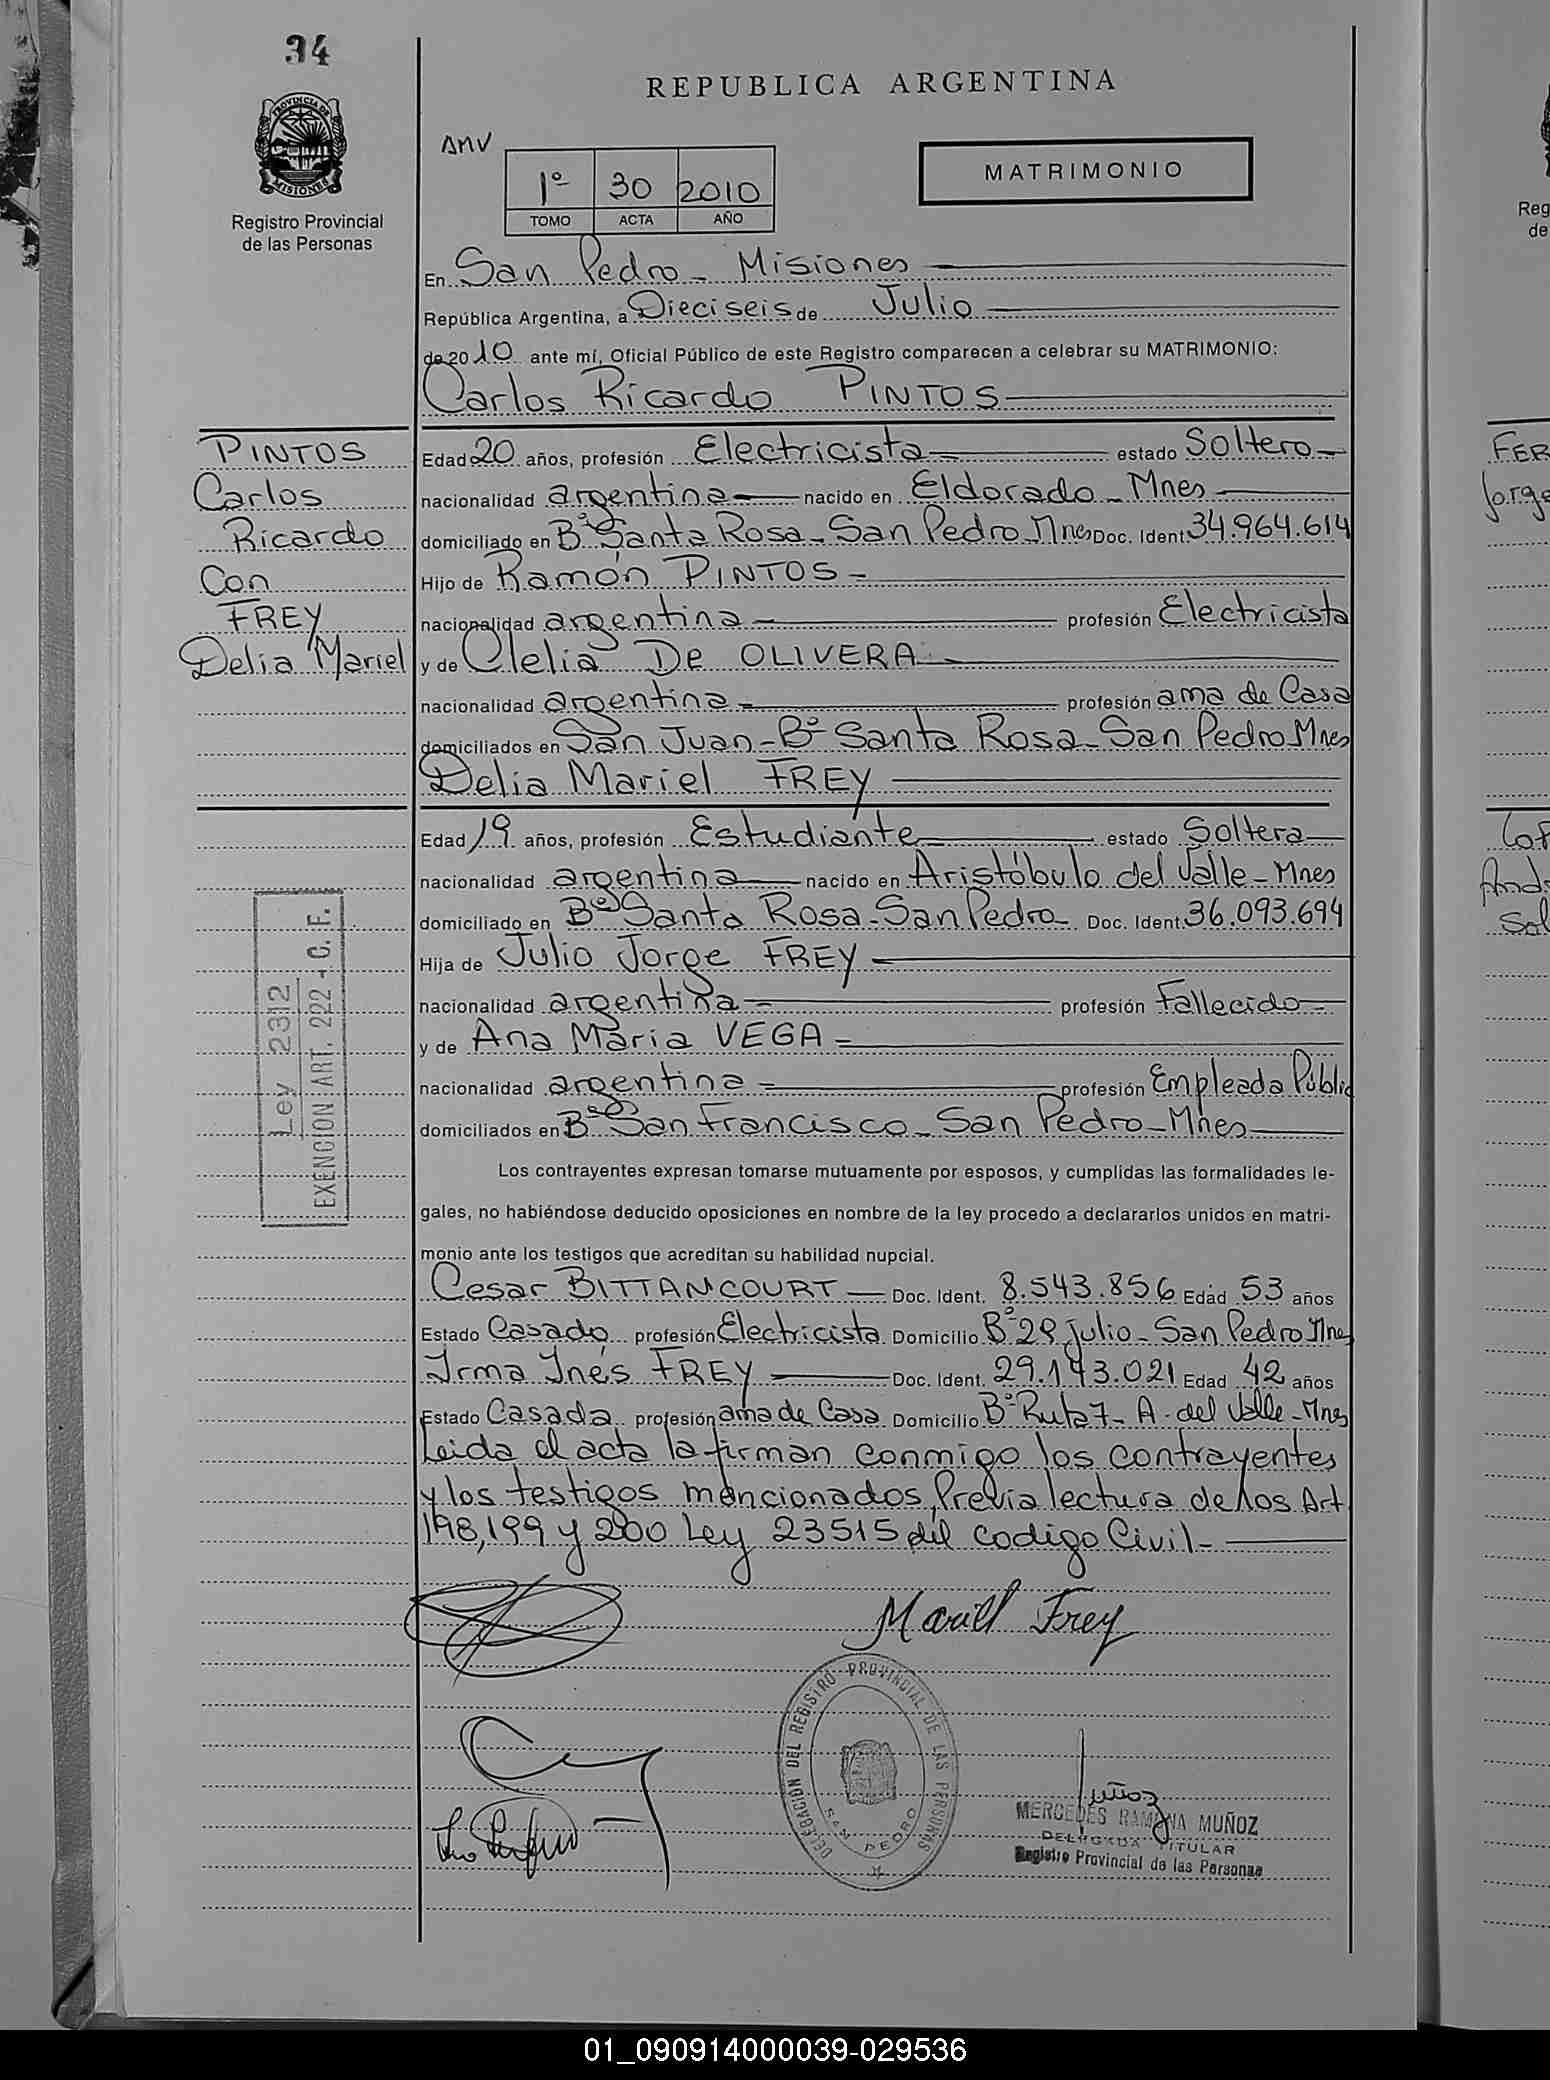 34
PROVINCIA DE
MISIONES
Registro Provincial
de las Personas
REPUBLICA ARGENTINA
AMV
1º 30 2010
TOMO ACTA AÑO
MATRIMONIO
En San Pedro - Misiones
República Argentina, a Dieciseis de Julio
de 2010 ante mí, Oficial Público de este Registro comparecen a celebrar su MATRIMONIO:
Carlos Ricardo PINTOS
PINTOS
Carlos
Ricardo
Con
FREY
Delia Mariel
Edad 20 años, profesión Electricista estado Soltero
nacionalidad argentina nacido en Eldorado - Mnes
domiciliado en Bº Santa Rosa - San Pedro Mnes Doc. Ident. 34.964.614
Hijo de Ramón PINTOS -
nacionalidad argentina profesión Electricista
y de Clelia De OLIVERA
nacionalidad argentina profesión ama de Casa
domiciliados en San Juan - Bº Santa Rosa - San Pedro Mnes
Delia Mariel FREY
Edad 19 años, profesión Estudiante estado Soltera
nacionalidad argentina nacido en Aristóbulo del Valle - Mnes
domiciliado en Bº Santa Rosa - San Pedro - Doc. Ident. 36.093.694
Hija de Julio Jorge FREY
nacionalidad argentina profesión Fallecido
y de Ana Maria VEGA
nacionalidad argentina profesión Empleada Públic
domiciliados en Bº San Francisco - San Pedro - Mnes
Ley 2312
EXENCION ART. 222 - C. F.
Los contrayentes expresan tomarse mutuamente por esposos, y cumplidas las formalidades le-
gales, no habiéndose deducido oposiciones en nombre de la ley procedo a declararlos unidos en matri-
monio ante los testigos que acreditan su habilidad nupcial.
Cesar BITTANCOURT Doc. Ident. 8.543.856 Edad 53 años
Estado Casado profesión Electricista Domicilio Bº 28 julio - San Pedro Mnes
Irma Inés FREY Doc. Ident. 29.143.021 Edad 42 años
Estado Casada profesión ama de Casa Domicilio Bº Ruta 7 - A. del Valle - Mnes
Leida el acta la firman conmigo los contrayentes
y los testigos mencionados, Previa lectura de los Art
198, 199 y 200 Ley 23515 del Codigo Civil -
Mariel Frey
DELEGACION DEL REGISTRO PROVINCIAL DE LAS PERSONAS
SAN PEDRO
Muñoz
MERCEDES RAMONA MUÑOZ
DELEGADA TITULAR
Registro Provincial de las Personas
Reg
de
FER
Jorge
01_090914000039-029536